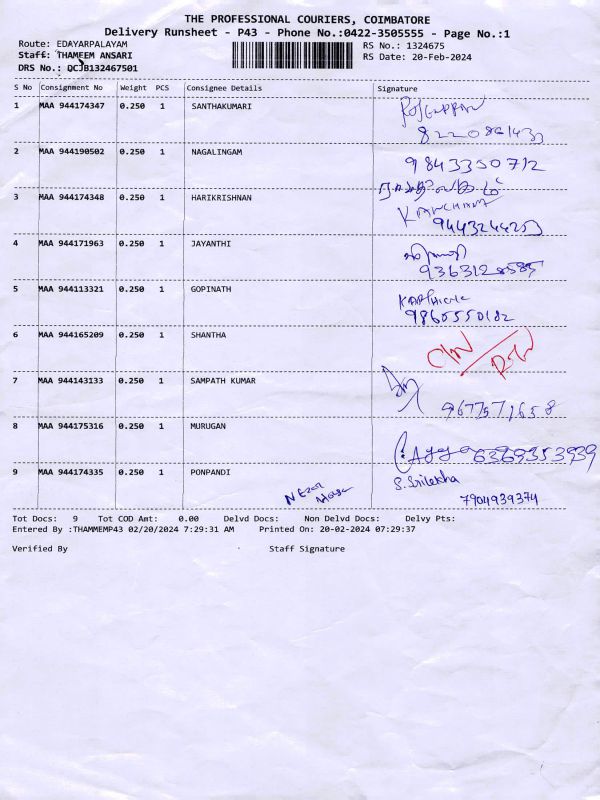 THE PROFESSIONAL COURIERS, COIMBATORE
Delivery Runsheet - P43 - Phone No.:0422-3505555 - Page No.:1
Route: EDAYARPALAYAM RS No.: 1324675
Staff: THAMEEM ANSARI RS Date: 20-Feb-2024
DRS No.: QCJB132467501
S No Consignment No Weight PCS Consignee Details Signature
1 MAA 944174347 0.250 1 SANTHAKUMARI
2 MAA 944190502 0.250 1 NAGALINGAM 9843350712
3 MAA 944174348 0.250 1 HARIKRISHNAN
KANCHANA
4 MAA 944171963 0.250 1 JAYANTHI
9363128585
5 MAA 944113321 0.250 1 GOPINATH
9860550182
6 MAA 944165209 0.250 1 SHANTHA
7 MAA 944143133 0.250 1 SAMPATH KUMAR
9677571658
8 MAA 944175316 0.250 1 MURUGAN
6369353939
9 MAA 944174335 0.250 1 PONPANDI S. Srilekha
7904939374
Tot Docs: 9 Tot COD Amt: 0.00 Delvd Docs: Non Delvd Docs: Delvy Pts:
Entered By :THAMMEMP43 02/20/2024 7:29:31 AM Printed On: 20-02-2024 07:29:37
Verified By Staff Signature